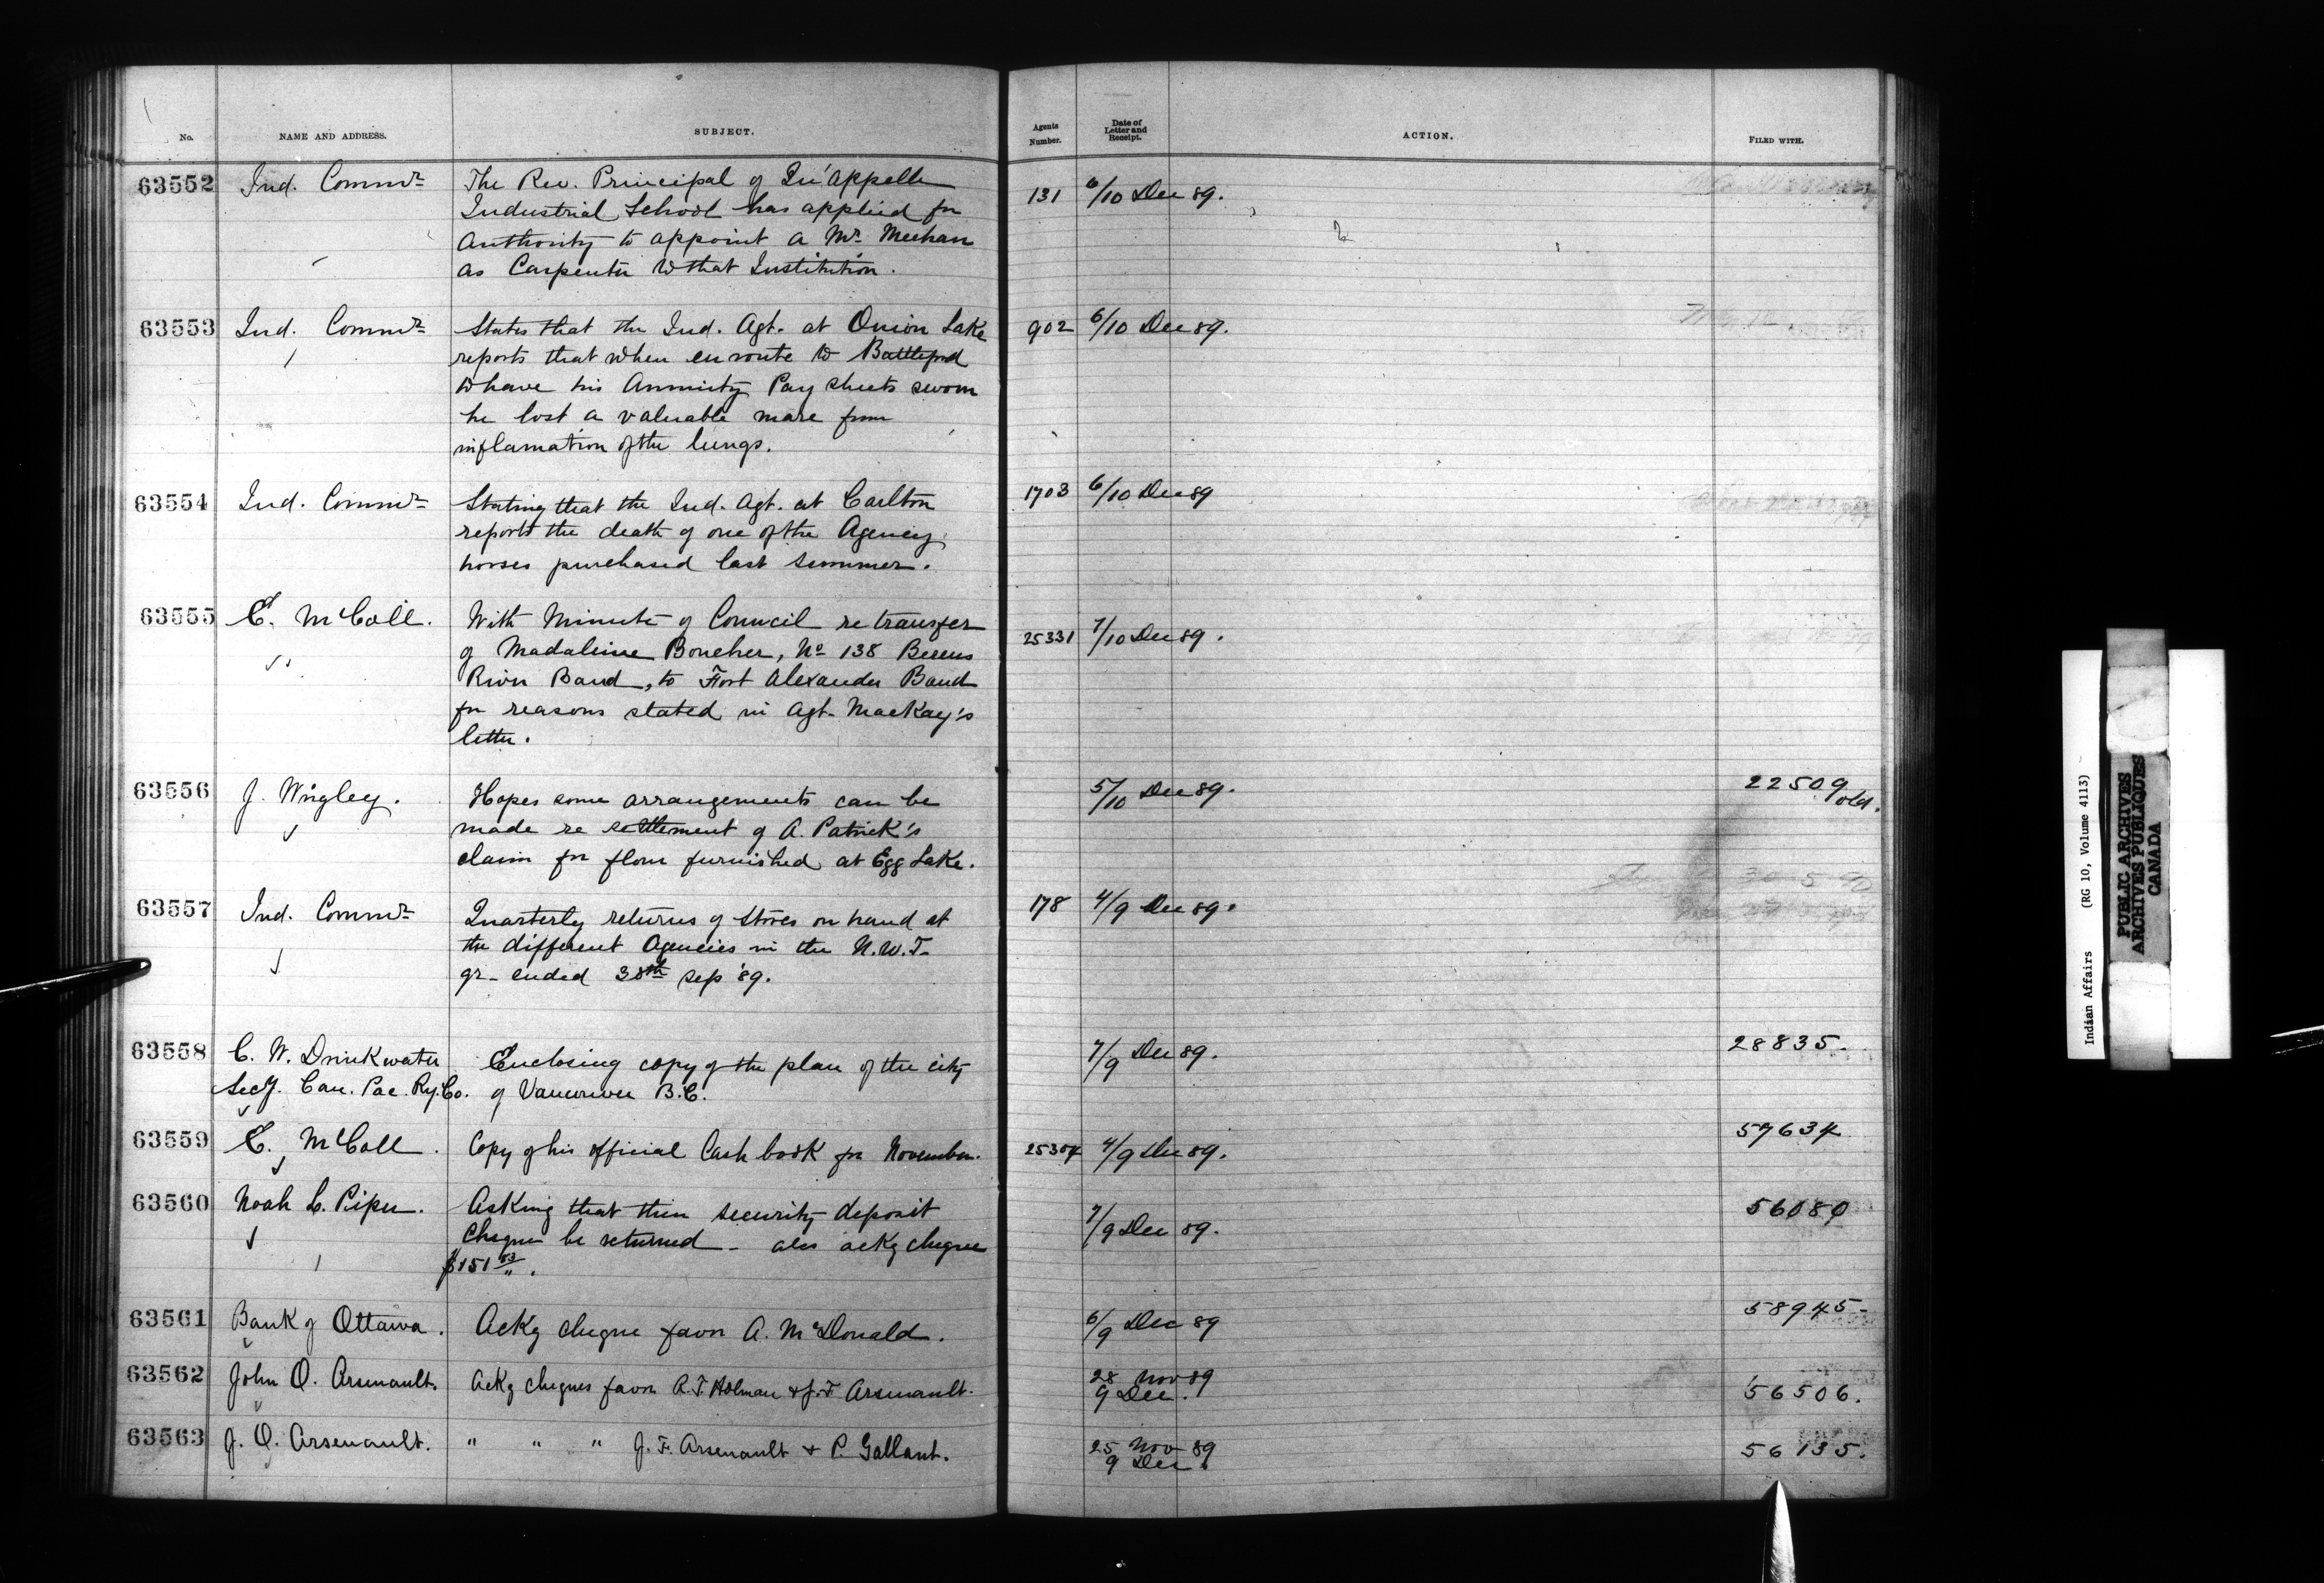 No.
NAME AND ADDRESS.
SUBJECT.
Agents Number.
Date of Letter and Receipt.
ACTION.
FILED WITH.
63552
Ind. Commr
The Rev. Principal of Qu'Appelle
Industrial School has applied for
authority to appoint a Mr. Meehan
as Carpenter to that Institution.
131
6/10 Dec 89.
63553
Ind. Commr
States that the Ind. Agt. at Onion Lake
reports that when en route to Battleford
to have his Annuity Pay sheets sworn
he lost a valuable mare from
inflamation of the lungs.
902
6/10 Dec 89.
63554
Ind. Commr
Stating that the Ind. Agt. at Carlton
reports the death of one of the Agency
horses purchased last summer.
1703
6/10 Dec 89
63555
E. McColl.
With Minute of Council re transfer
of Madaleine Boucher, No 138 Berens
River Band, to Fort Alexander Band
for reasons stated in Agt. MacKay's
letter.
25331
7/10 Dec 89.
63556
J. Wrigley.
Hopes some arrangements can be
made re settlement of A. Patrick's
claim for flour furnished at Egg Lake.
5/10 Dec 89.
22509 old.
63557
Ind. Commr
Quarterly returns of stores on hand at
the different Agencies in the N.W.T.
qr. ended 30th Sep '89.
178
4/9 Dec 89.
63558
C. W. Drinkwater
Secy. Can. Pac. Ry. Co.
Enclosing copy of the plan of the city
of Vancouver B.C.
7/9 Dec 89.
28835.
63559
E. McColl.
Copy of his official Cash book for November.
25304
4/9 Dec 89.
57634
63560
Noah L. Piper.
Asking that their security deposit
cheque be returned - also ackg cheque
$151 83/".
7/9 Dec 89.
56080
63561
Bank of Ottawa.
Ackg cheque favor A. McDonald.
6/9 Dec 89
58945-
63562
John O. Arsenault.
Ackg cheques favor R. T. Holman & J. F. Arsenault.
28 Nov 89
9 Dec.
56506.
63563
J. O. Arsenault.
" " " J. F. Arsenault & P. Gallant.
25 Nov 89
9 Dec.
56135.
Indian Affairs (RG 10, Volume 4113)
PUBLIC ARCHIVES
ARCHIVES PUBLIQUES
CANADA